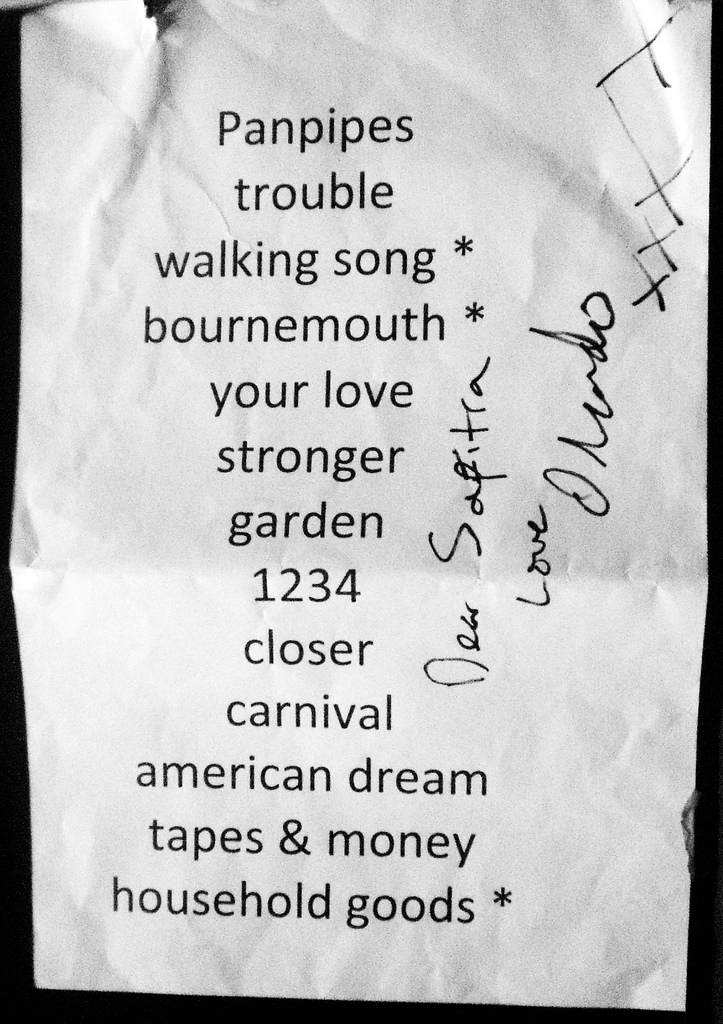 Panpipes
trouble
walking song *
bournemouth *
your love
stronger
garden
1234
closer
carnival
american dream
tapes & money
household goods *
Dear Saffitra
Love
Orlando
xxxx